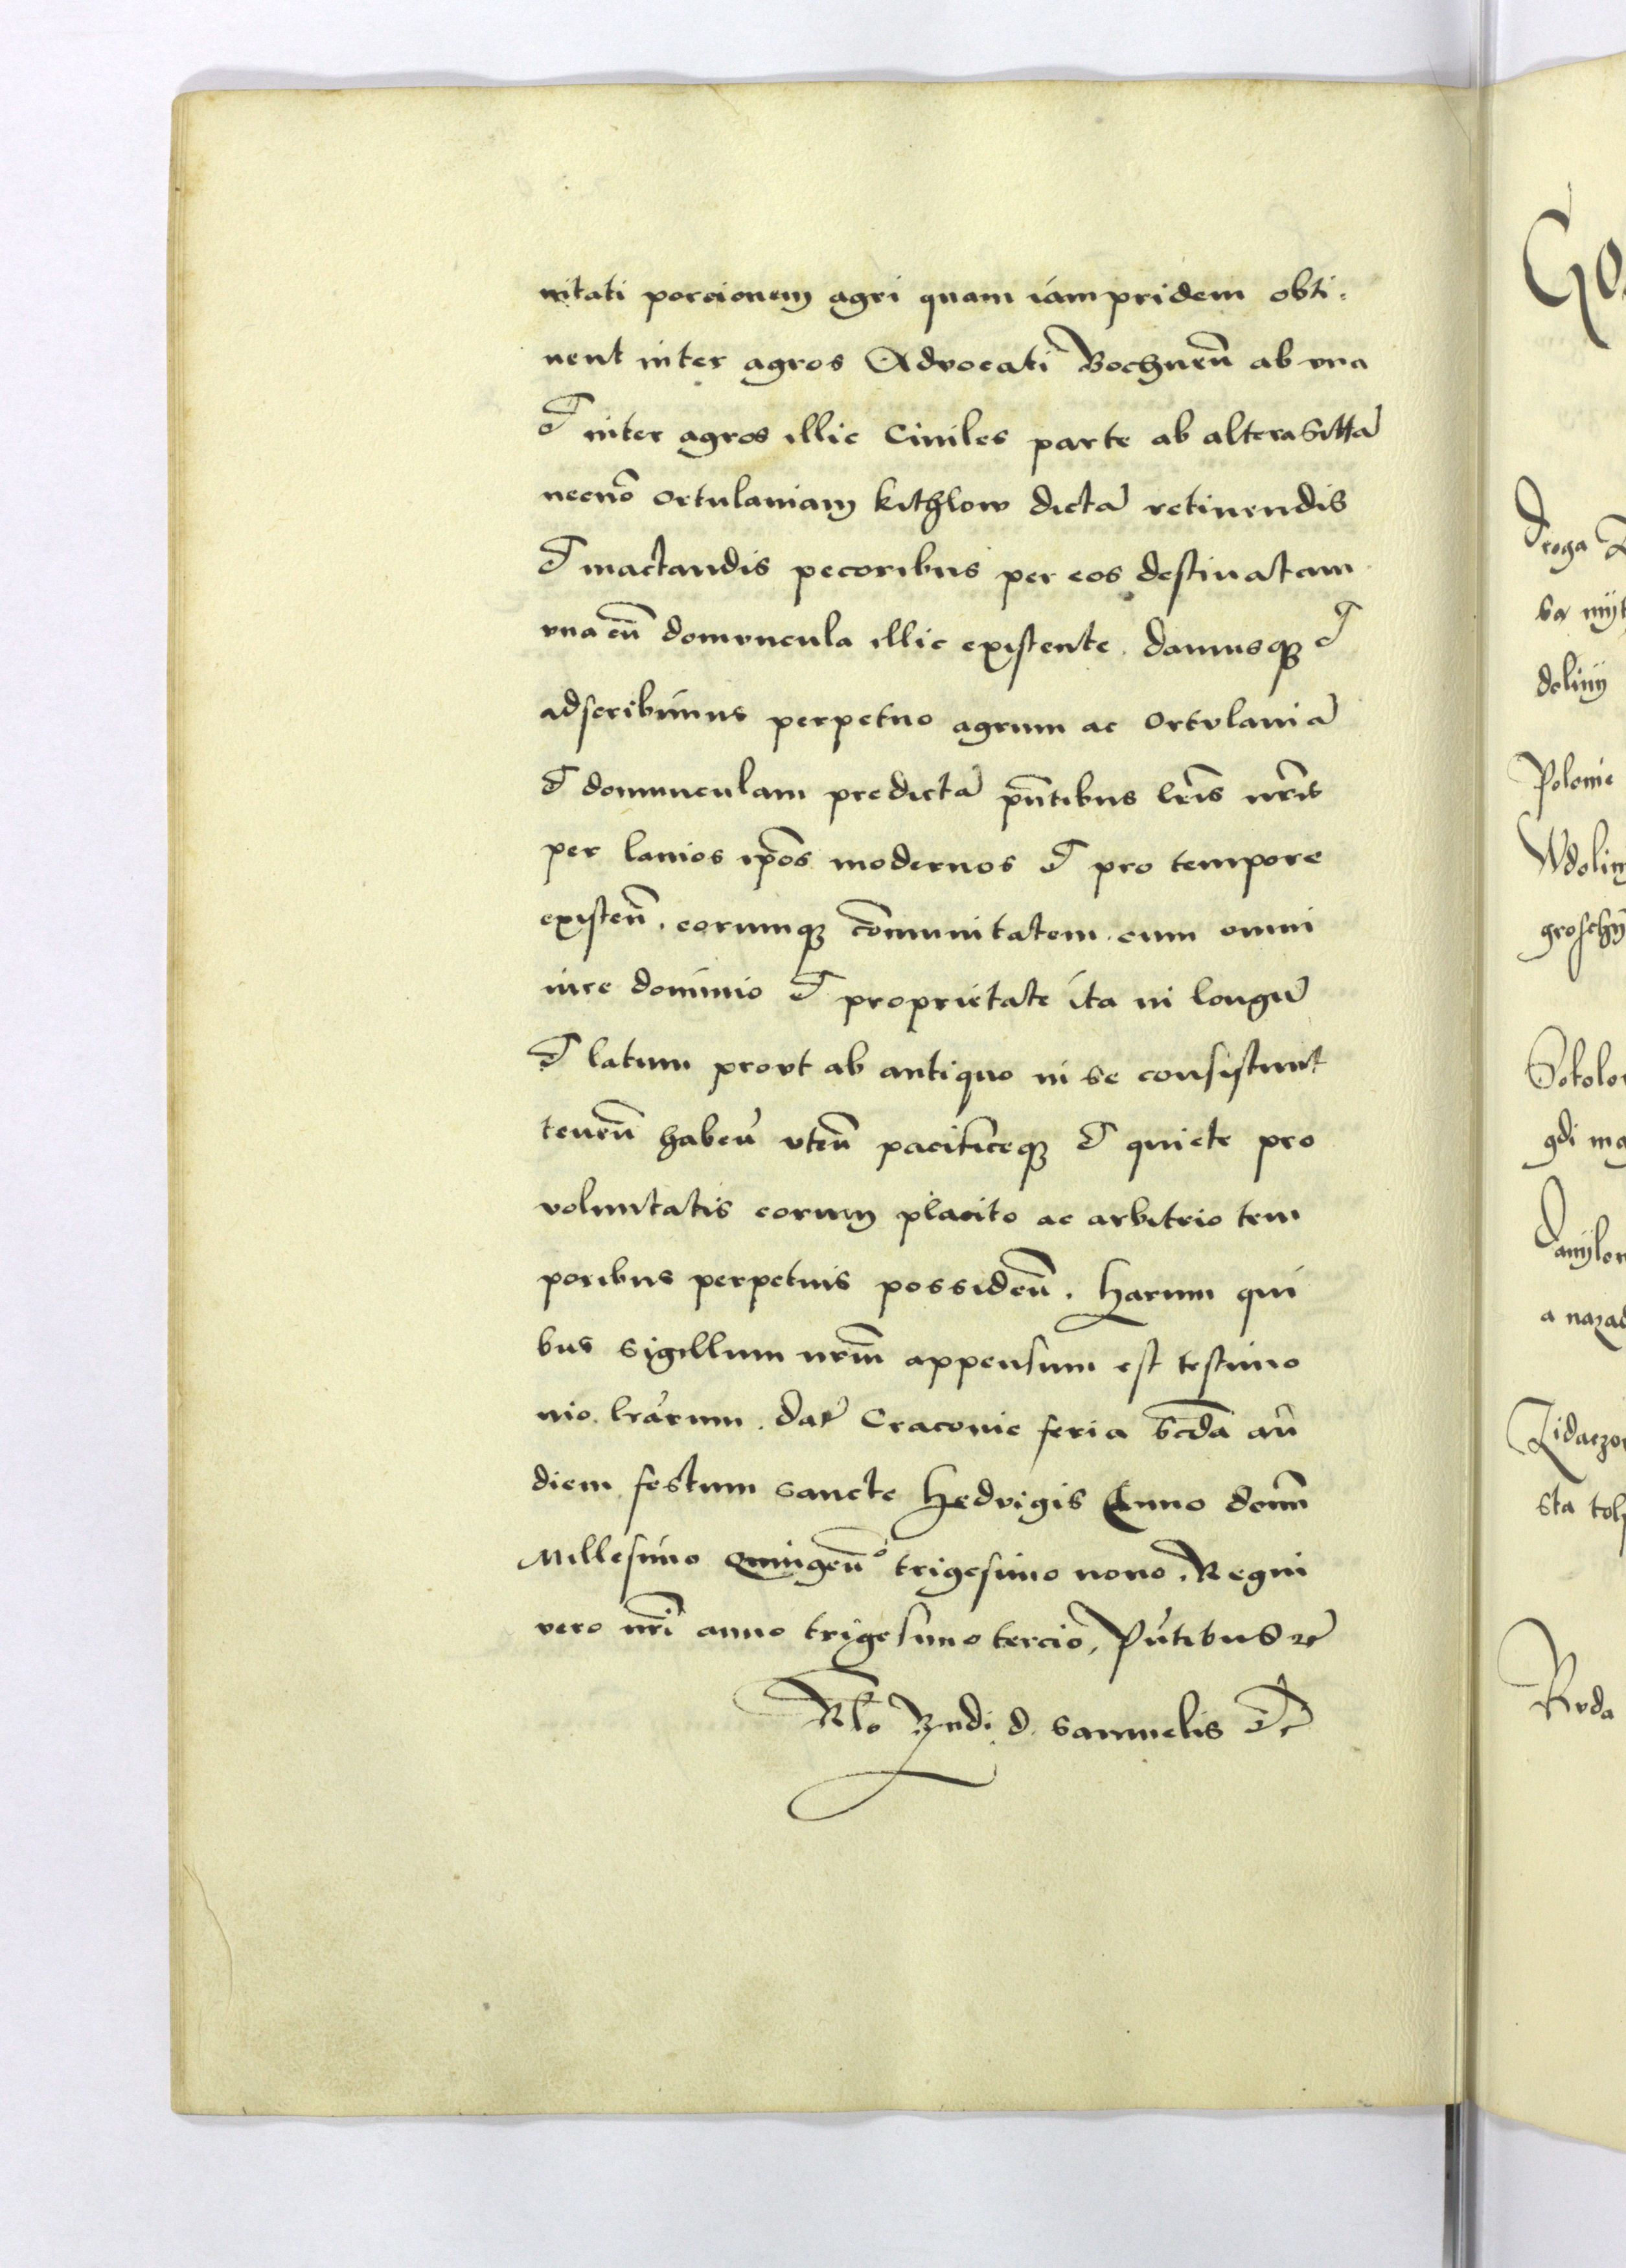 nitati porcionem agri quam iampridem obti:
nent inter agros Advocati Bochneñ ab vna
et inter agros illic Ciuiles parte ab altera sittã
necnõ ortulaniam kithlow dictã retinendis
et mactandis pecoribus per eos destinatam
vna cũ domuncula illic existente. damusq; et
adscribimus perpetuo agrum ac ortvlaniã
et domunculam predictã pñtibus lr̃is nr̃is
per lanios ip̃os modernos et pro tempore
existeñ. eorumq; cõmunitatem. cum omni
iure dominio et proprietate ita in longũ
et latum provt ab antiquo in se consistunt
teneñ habeñ vteñ pacificeq; et quiete pro
voluntatis eorum placito ac arbitrio tem
poribus perpetuis possideñ. Harum qui
bus sigillum nr̃m appensum est testimo
nio. lr̃arum. dat̃ Cracovie feria scd̃a añ
diem festum sancte Hedvigis Anno domĩ
Millesimo Quingeñº trigesimo nono. Regni
vero nr̃i anno trigesimo tercio, Pñtibus etc̃
Rlõ Rndi d. Samuelis etc̃
Polonie
Rvda